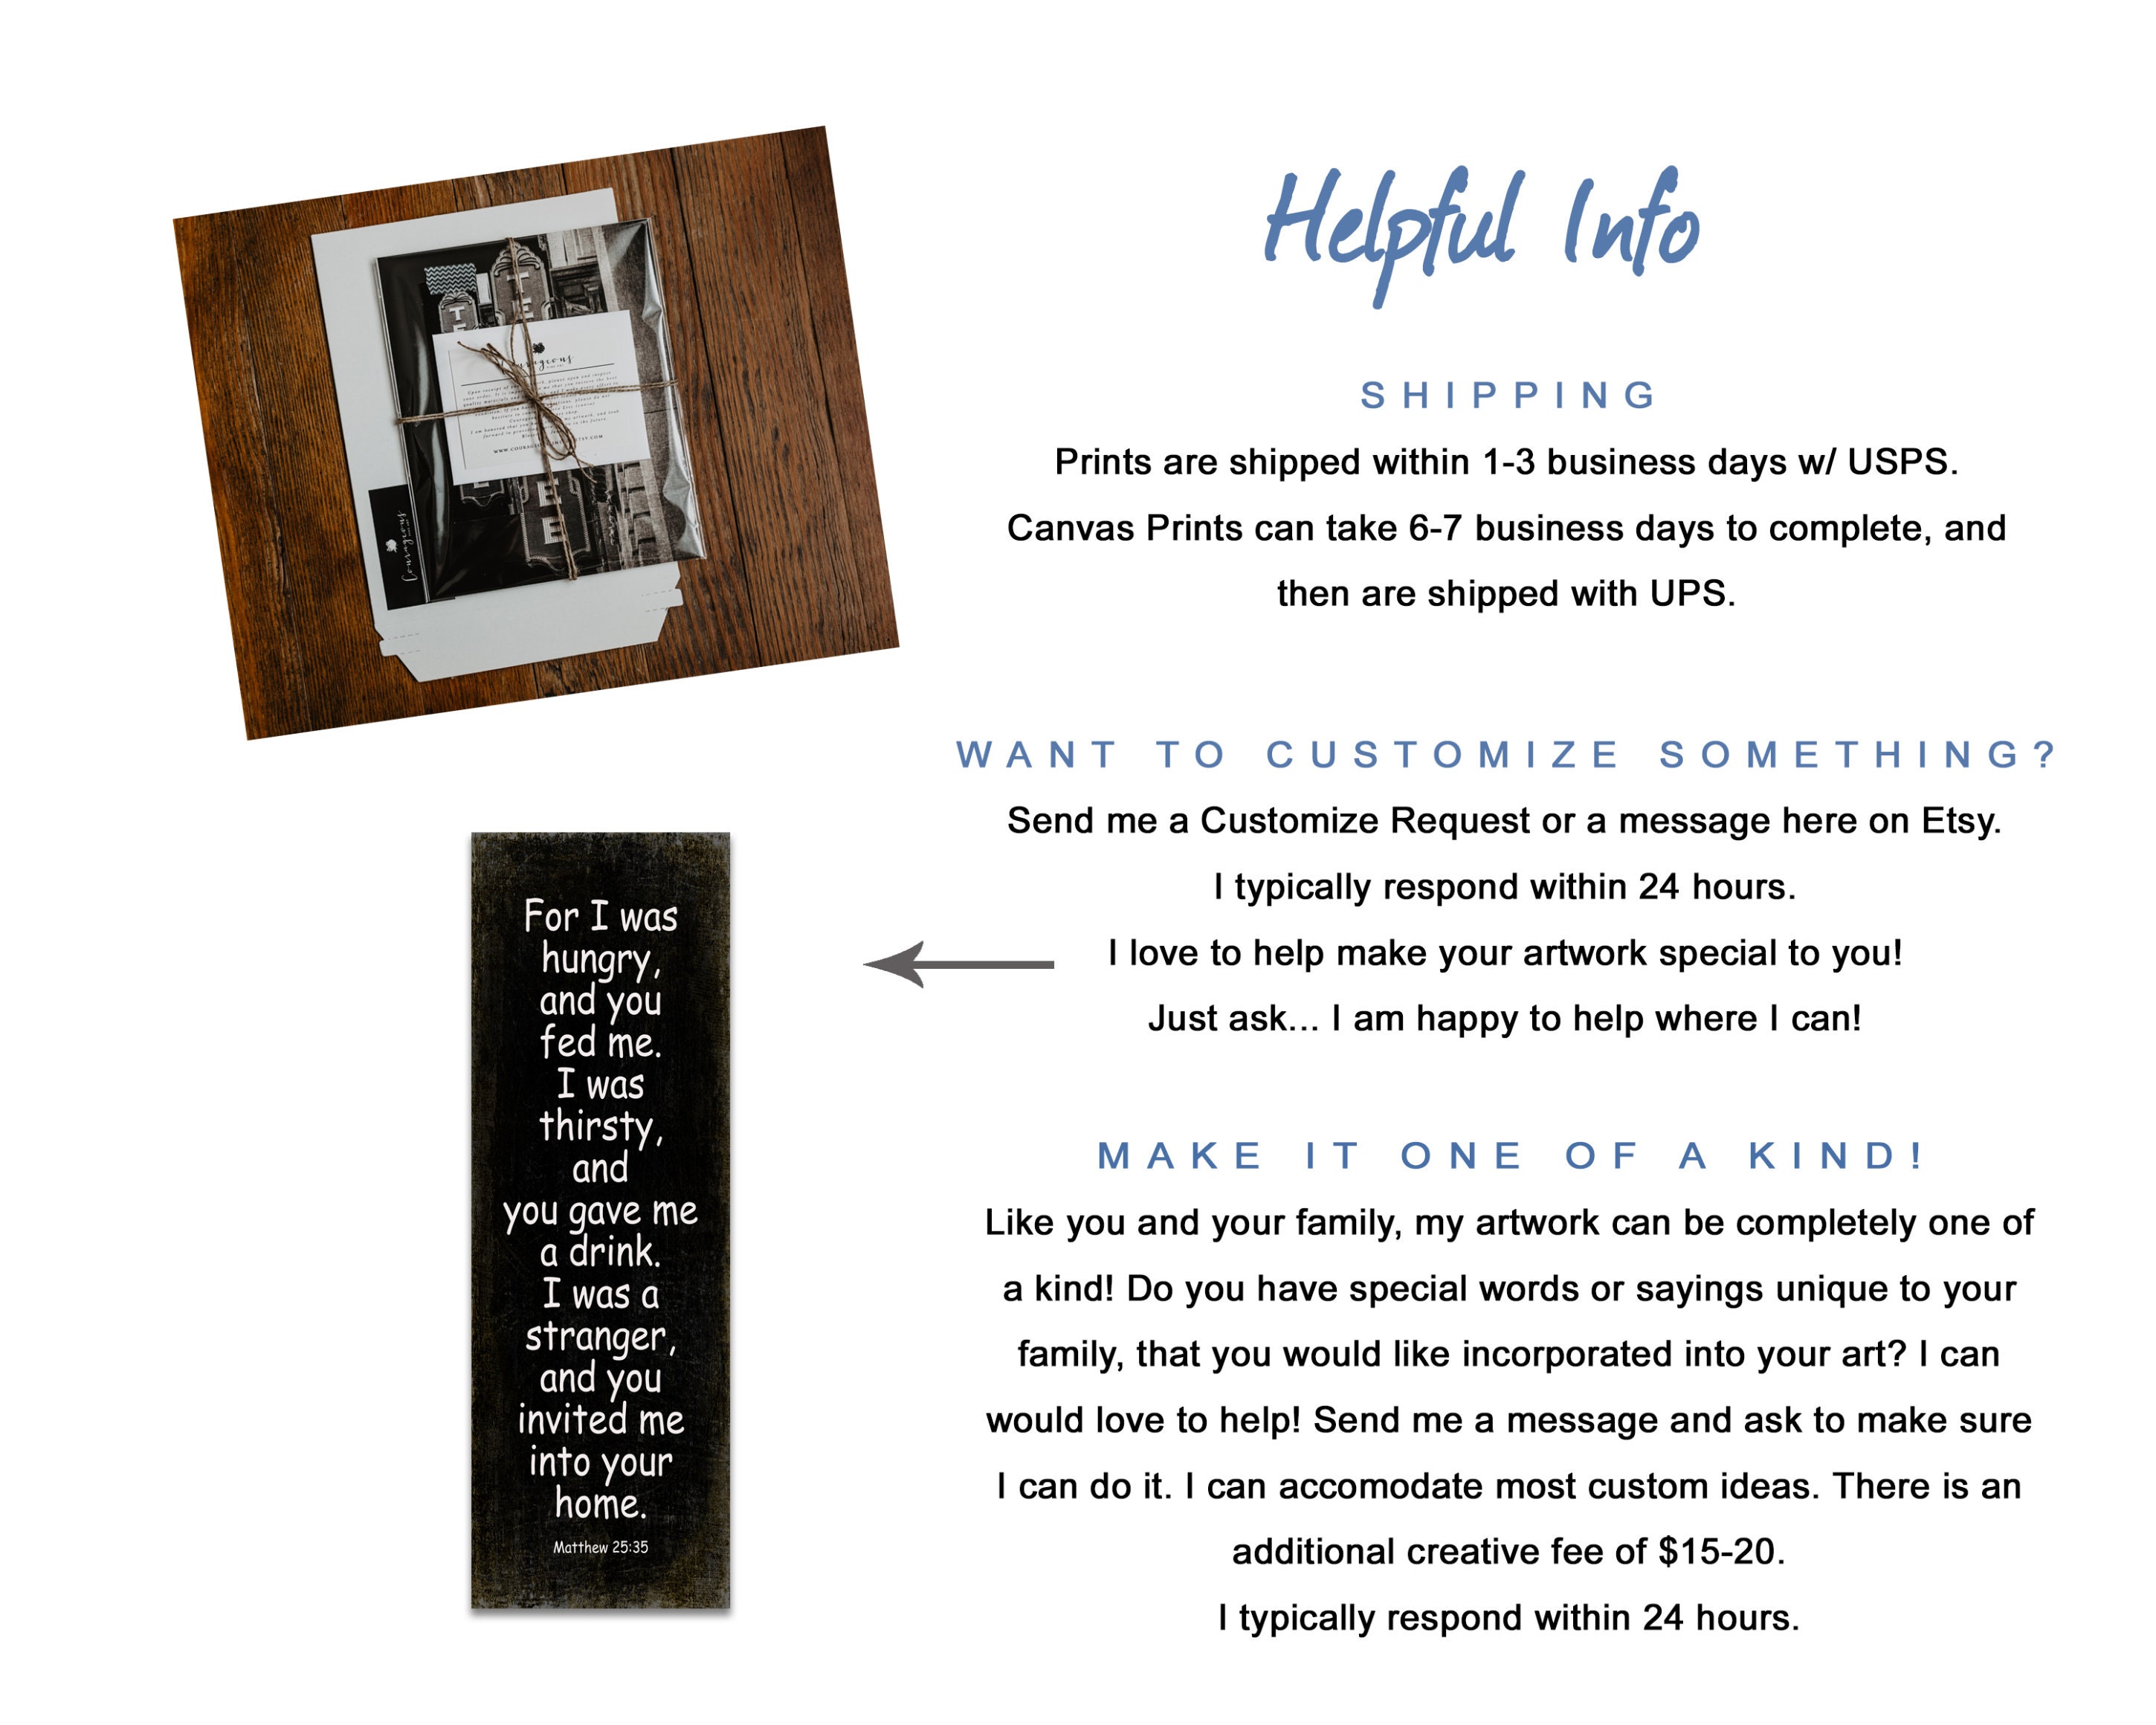 Helpful Info
SHIPPING
Prints are shipped within 1-3 business days w/ USPS.
Canvas Prints can take 6-7 business days to complete, and
then are shipped with UPS.
WANT TO CUSTOMIZE SOMETHING?
Send me a Customize Request or a message here on Etsy.
I typically respond within 24 hours.
I love to help make your artwork special to you!
Just ask... I am happy to help where I can!
MAKE IT ONE OF A KIND!
Like you and your family, my artwork can be completely one of
a kind! Do you have special words or sayings unique to your
family, that you would like incorporated into your art? I can
would love to help! Send me a message and ask to make sure
I can do it. I can accomodate most custom ideas. There is an
additional creative fee of $15-20.
I typically respond within 24 hours.
For I was
hungry,
and you
fed me.
I was
thirsty,
and
you gave me
a drink.
I was a
stranger,
and you
invited me
into your
home.
Matthew 25:35
Courageous